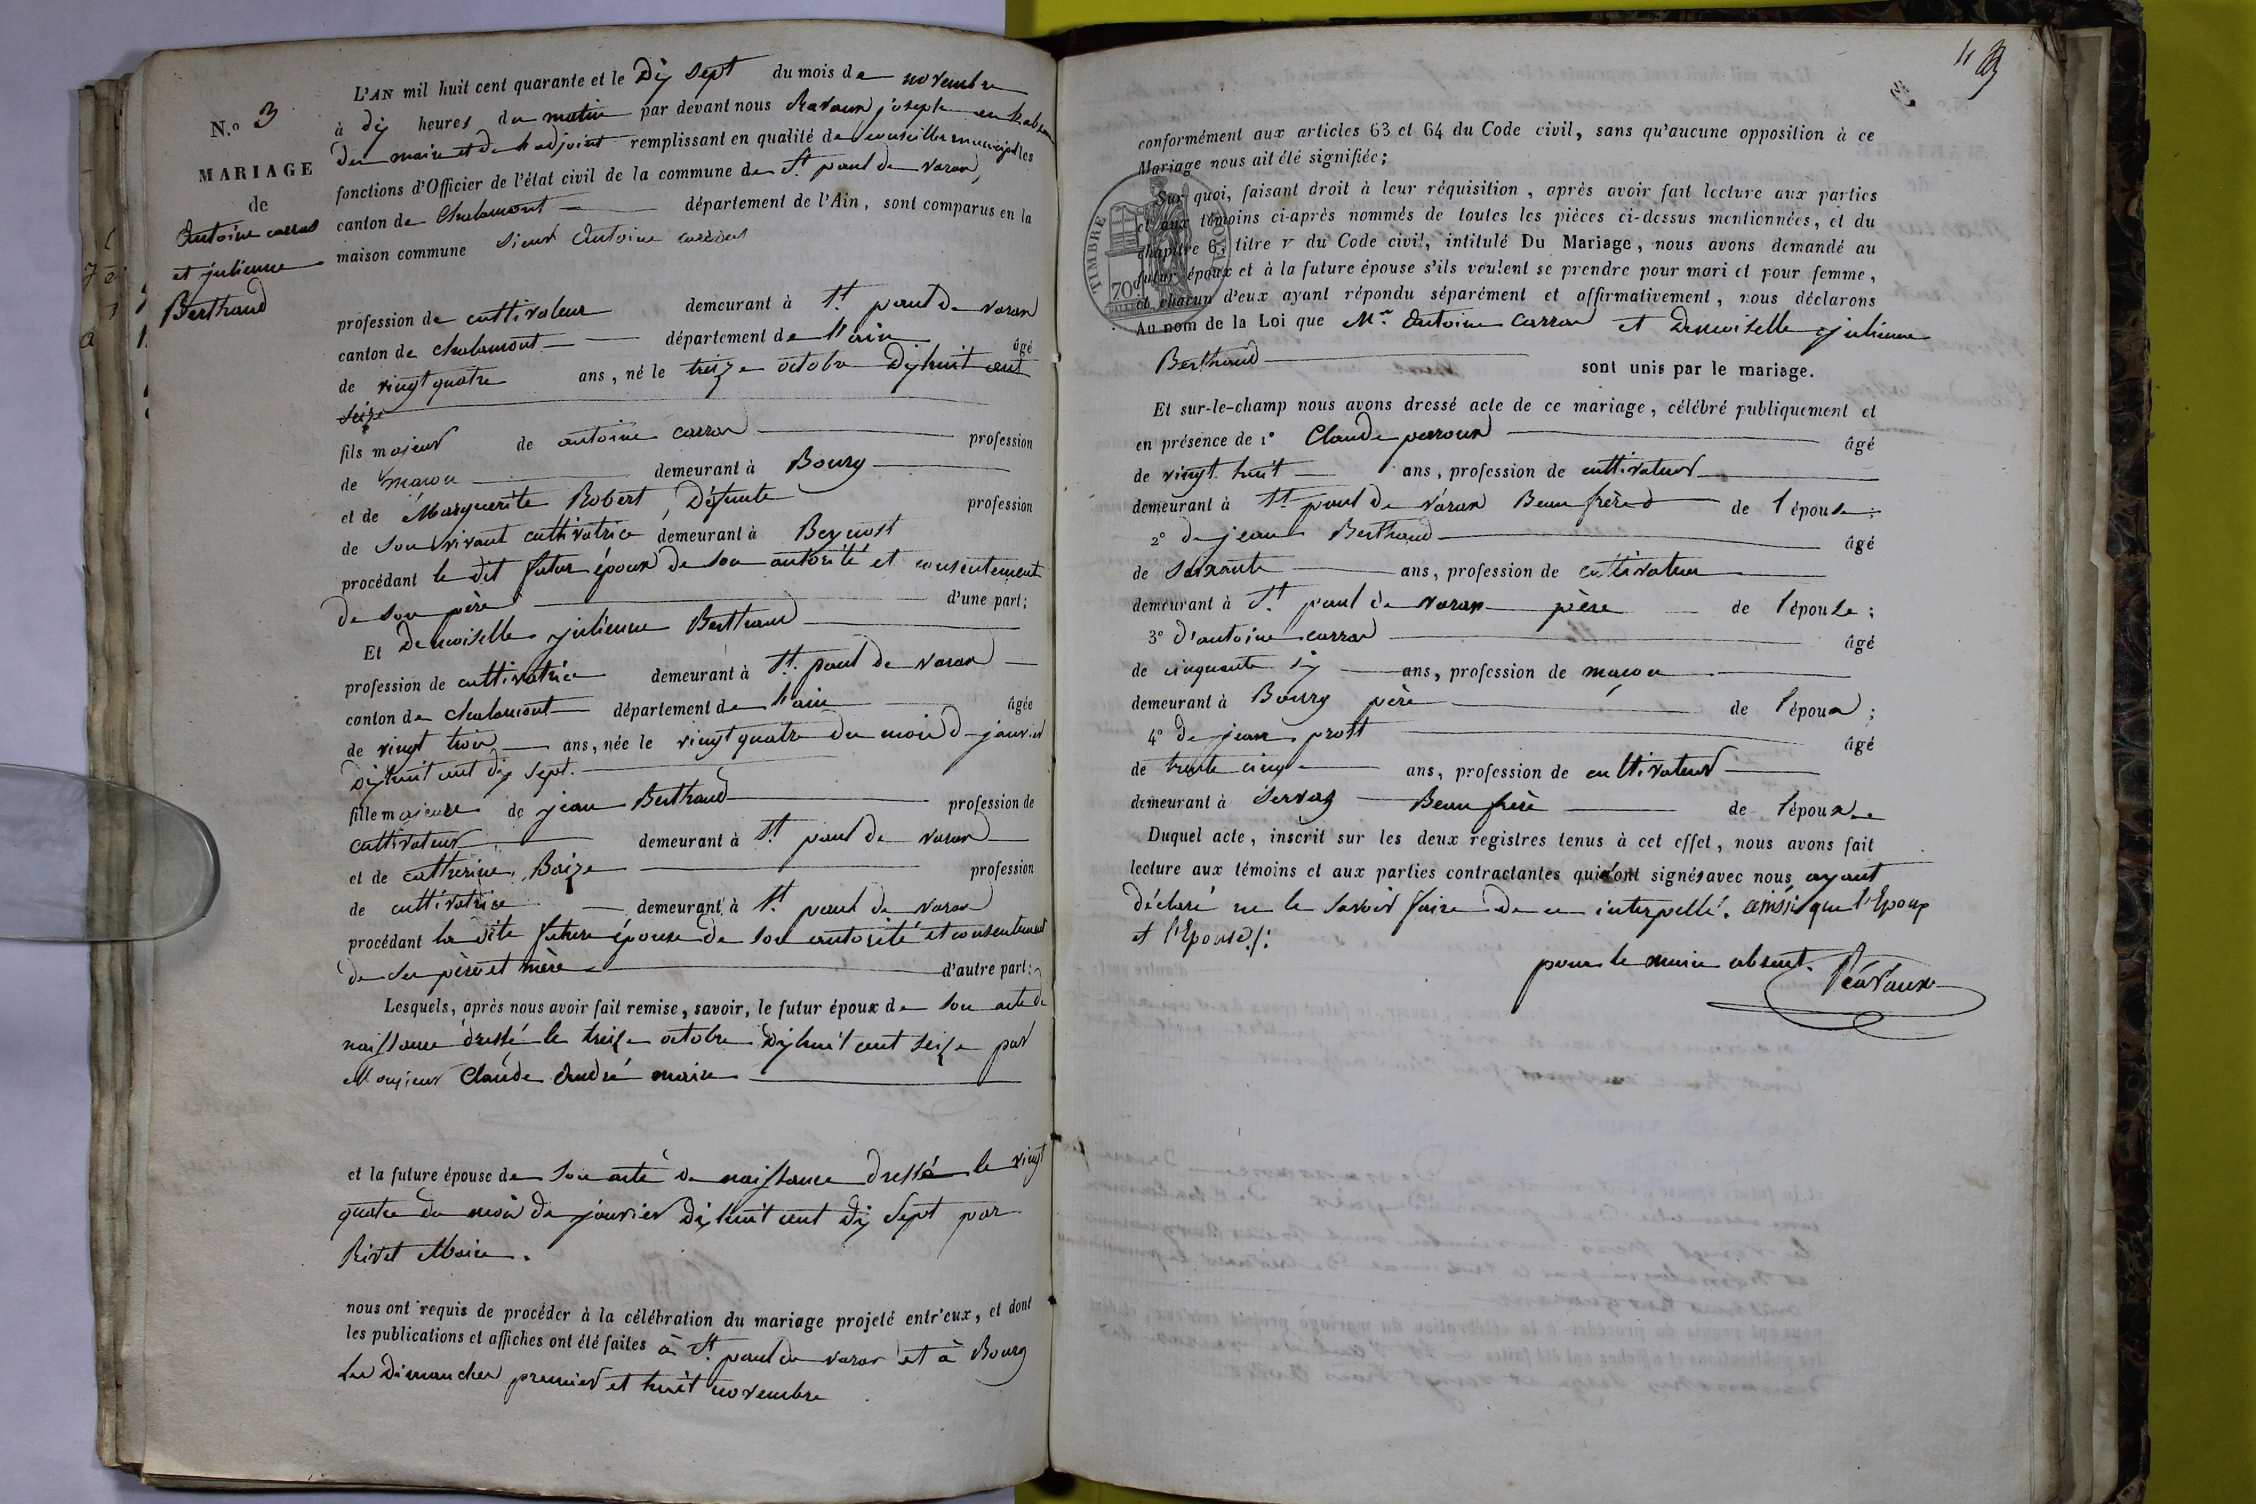 N.º 3
MARIAGE
de
Antoine carras
et julienne
Berthaud
L'AN mil huit cent quarante et le dix sept du mois de novembre
à dix heures du matin par devant nous Ravaux joseph en l'absence
du maire et de l'adjoint remplissant en qualité de conseiller municipal les
fonctions d'Officier de l'état civil de la commune de St. paul de varax,
canton de Chalamont département de l'Ain, sont comparus en la
maison commune sieur Antoine
profession de cultivateur demeurant à St. paul de varax
canton de chalamont département de l'ain âgé
de vingt quatre ans, né le treize octobre dix huit cent
seize
fils majeur de antoine carras profession
de maçon demeurant à Bourg
et de Marguerite Robert, Défunte profession
de son vivant cultivatrice demeurant à Beynost
procédant le dit futur époux de son autorité et consentement
de son père d'une part;
Et Demoiselle julienne Berthaud
profession de cultivatrice demeurant à St. paul de varax
canton de chalamont département de l'ain âgée
de vingt trois ans, née le vingt quatre du mois de janvier
dix huit cent dix sept.
fille majeure de jean Berthaud profession de
cultivateur demeurant à St. paul de varax
et de catherine Baize profession
de cultivatrice demeurant à St. paul de varax
procédant la dite future épouse de son autorité et consentement
de ses père et mère d'autre part;
Lesquels, après nous avoir fait remise, savoir, le futur époux de son acte de
naissance dressé le treize octobre dix huit cent seize par
Monsieur Claude André maire
et la future épouse de son acte de naissance dressé le vingt
quatre du mois de janvier dix huit cent dix sept par
Rivet Maire.
nous ont requis de procéder à la célébration du mariage projeté entr'eux, et dont
les publications et affiches ont été faites à St. paul de varax et à Bourg
les dimanches premier et huit novembre
conformément aux articles 63 et 64 du Code civil, sans qu'aucune opposition à ce
Mariage nous ait été signifiée;
Sur quoi, faisant droit à leur réquisition, après avoir fait lecture aux parties
et aux témoins ci-après nommés de toutes les pièces ci-dessus mentionnées, et du
chapitre 6, titre v du Code civil, intitulé Du Mariage, nous avons demandé au
futur époux et à la future épouse s'ils veulent se prendre pour mari et pour femme,
et chacun d'eux ayant répondu séparément et affirmativement, nous déclarons
Au nom de la Loi que Mr. Antoine Carras et Demoiselle julienne
Berthaud sont unis par le mariage.
TIMBRE
70c
Et sur-le-champ nous avons dressé acte de ce mariage, célébré publiquement et
en présence de 1º Claude paroux âgé
de vingt huit ans, profession de cultivateur
demeurant à St. paul de varax Beau frère de l'épouse;
2º de jean Berthaud âgé
de soixante ans, profession de cultivateur
demeurant à St. paul de varax père de l'épouse;
3º d'antoine carras âgé
de cinquante six ans, profession de maçon
demeurant à Bourg père de l'époux;
4º de jean prost âgé
de trente cinq ans, profession de cultivateur
demeurant à Servas Beau frère de l'époux
Duquel acte, inscrit sur les deux registres tenus à cet effet, nous avons fait
lecture aux témoins et aux parties contractantes qui n'ont signés avec nous ayant
déclaré ne le savoir faire de ce interpellé. ainsi que l'Epoux
et l'Epouse./.
pour le maire absent. Ravaux